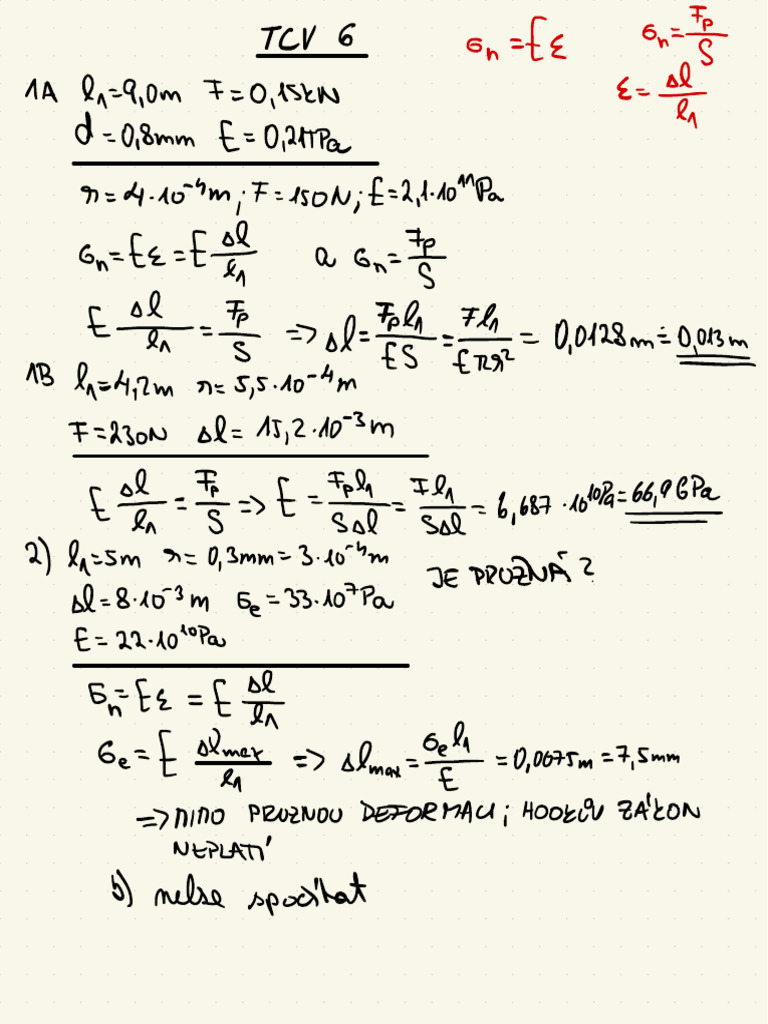 TCV 6
σn = Eε
σn = Fp/S
ε = Δl/l1
1A l1=9,0m F=0,15kN
d=0,8mm E=0,21TPa
r=4·10⁻⁴m; F=150N; E=2,1·10¹¹Pa
σn=Eε=E Δl/l1 a σn=Fp/S
E Δl/l1 = Fp/S => Δl = Fp l1/ES = F l1/Eπr² = 0,0128m ≐ 0,013m
1B l1=4,2m r=5,5·10⁻⁴m
F=230N Δl=15,2·10⁻³m
E Δl/l1 = Fp/S => E = Fp l1/SΔl = F l1/SΔl = 6,687·10¹⁰Pa = 66,9GPa
2) l1=5m r=0,3mm=3·10⁻⁴m
JE PRUŽNÁ?
Δl=8·10⁻³m σe=33·10⁷Pa
E=22·10¹⁰Pa
σn=Eε=E Δl/l1
σe=E Δlmax/l1 => Δlmax = σe l1/E = 0,0075m = 7,5mm
=> MIMO PRUŽNOU DEFORMACI; HOOKŮV ZÁKON
NEPLATÍ
b) nelse spočítat